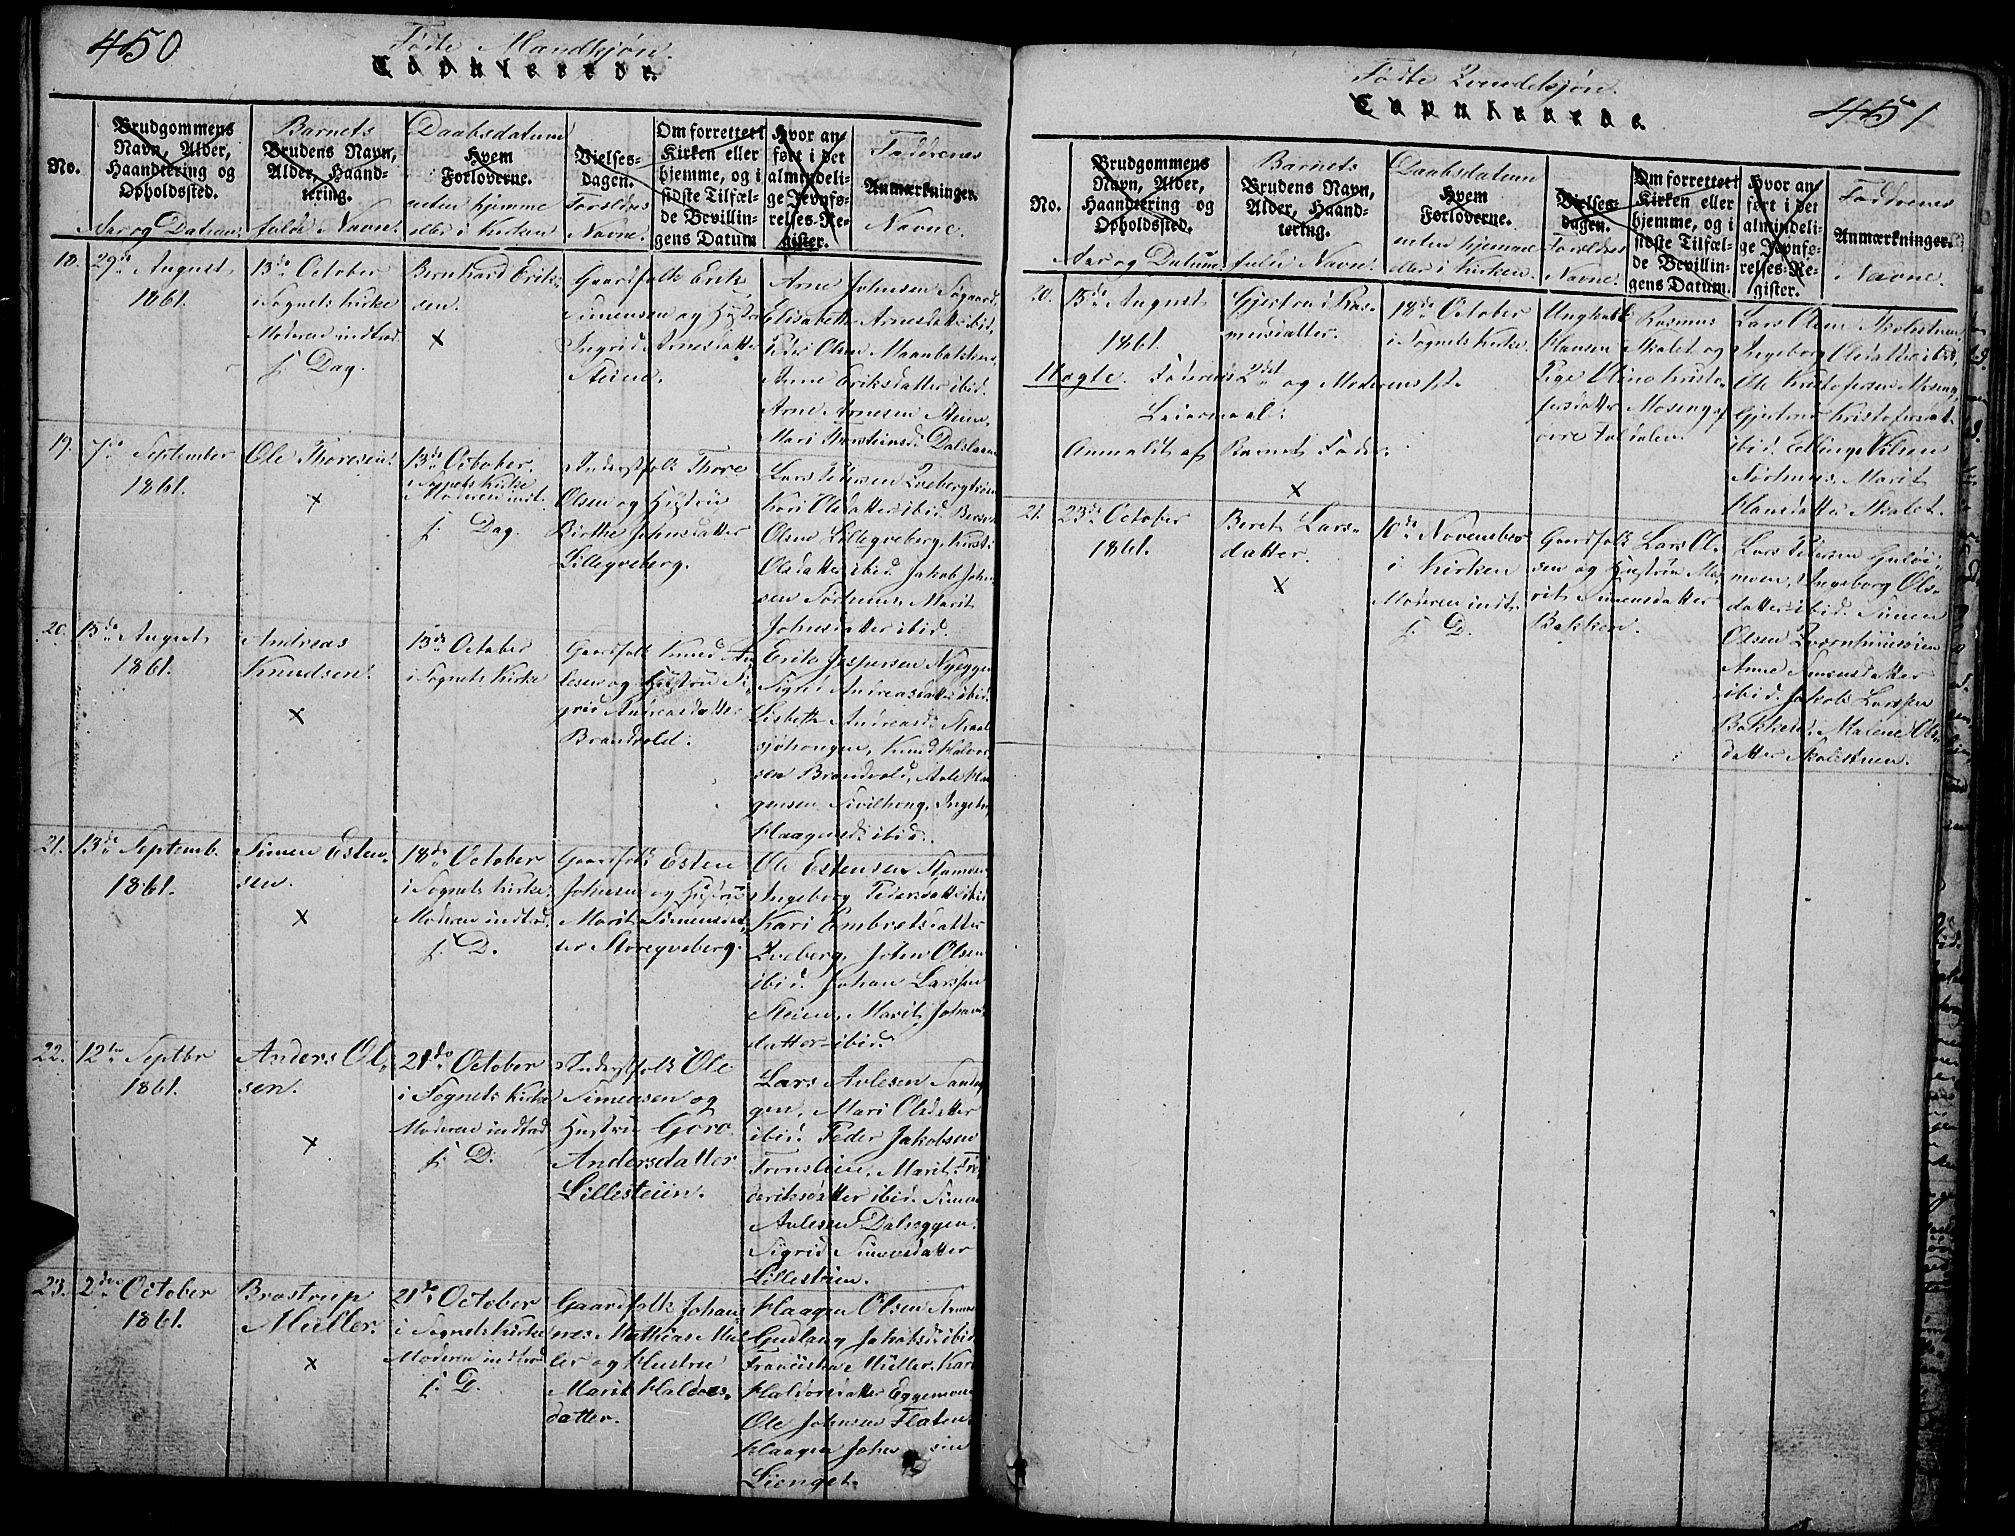 450
Fødte Mandkjøn.
Copulerede.
No.
Brudgommens Navn, Alder, Haandtering og Opholdssted.
Aar og Datum.
Barnets
Brudens Navn, Alder, Haandtering.
fulde Navn.
Daabsdatum
Hvem Forloverne.
enten hjemme
eller i Kirken
Vielsesdagen.
Forældres
Navne.
Om forrettet i Kirken eller hjemme, og i sidste Tilfælde Bevillingens Datum
Hvor anført i det almindelige Jevnførelses-Register.
Faderenes
Anmærkninger.
Navne.
18.
29de August
1861.
13de October
i Sognets Kirke
Moderen indtod
s. Dag.
Bernhard Erik-
sen.
×
Gaardfolk Erik
Simensen og Hustru
Ingrid Arnesdatter
Steine.
Arne Johnsen
Elisabeth Arnesdatter ibid.
Peder Olsen
Anne Eriksdatter ibid.
Arne Arnesen Steien,
Mari Thorsteinsd.
19.
7de September
1861.
Ole Thoresen.
×
13de October
i Sognets Kirke
Moderen indt.
s. Dag.
Inderstfolk Thore
Olsen og Hustru
Birthe Johnsdatter
Lilleqveberg.
Lars Petersen
Kari Olsdatter ibid.
Olsen Lilleqveberg, Kirsti
Olsdatter ibid. Jakob John-
sen Sørhuus, Marit
Johnsdatter ibid.
20.
15de August
1861.
Andreas
Knudsen.
×
13de October
i Sognets Kirke
Gaardfolk Knud
og Hustru Si-
grid Andreasdatter
Brandvold.
Erik Jespersen Nyeggen
Sigrid Andreasdatter ibid.
Lisbeth Andreasd.
Knud Halvor-
sen Brandvold,
Haagensd. ibid.
21.
13de Septemb.
1861.
Simen Esten-
sen.
×
18de October
i Sognets Kirke.
Moderen indtod
s. D.
Gaardfolk Esten
Johnsen og Hustru
Marit Simensdat-
ter Storeqveberg.
Ole Estensen
Ingeborg Pedersdatter ibid.
Kari Embretsdatter
Qveberg, John Olsen
ibid. Johan Larssen
Steien, Marit Johans-
datter ibid.
22.
12te Septbr
1861.
Anders Ol-
sen.
×
21de October
i Sognets Kirke
Moderen indtod
s. D.
Inderstfolk Ole
Simensen og
Hustru Goro
Andersdatter
Lillesteien.
Lars Avlesen
gen, Mari Olsdatter
ibid. Peder Jakobsen
Fronslien, Marit Fre-
deriksdatter ibid. Simen
Avlesen Dalseggen.
Sigrid Simensdatter
Lillesteien.
23.
2den October
1861.
Brostrup
Müller.
×
21de October
i Sognets Kirke
Moderen indtod
s. D.
Gaardfolk Johan-
nes Mathias Mül-
ler og Hustru
Marit Haldors-
datter.
Haagen Olsen
Gudlaug Jakobsd. ibid.
Franciska Müller. Kari
Haldorsdatter Eggemoen
Ole Johnsen Flaten
Haagen
Lienget.
Fødte Qvindekjøn.
451
Copulerede.
No.
Brudgommens Navn, Alder, Haandtering og Opholdsted.
Aar og Datum.
Barnets
Brudens Navn, Alder, Haandtering.
fulde Navn.
Daabsdatum
Hvem Forloverne.
enten hjemme
eller i Kirken.
Vielsesdagen.
Forældres
Navne.
Om forrettet i Kirken eller hjemme, og i sidste Tilfælde Bevillingens Datum.
Hvor anført i det almindelige Jevnførelses-Register.
Faddrenes
Anmærkninger.
Navne.
20.
15de August
1861.
Gjertrud Ras-
musdatter.
18de October
i Sognets Kirke.
Ungkarl Rasmus
Hansen Skalet og
Pige Oline Kristo-
fersdatter Mosengs
øvre Foldalen.
Lars Olsen
Ingeborg Olsdatter ibid.
Ole Kristofersen Moseng,
Gjertrud Kristofersdt.
ibid. Elling Nilsen
Sørhuus, Marit
Hansdatter Skalet.
Uægte. Faderens 2det og Moderens 1ste
Leiermaal.
Anmeldt af Barnets Fader.
×
21.
23de October
1861.
Beret Lars-
datter.
×
10de November
i Kirken
Moderen indt.
s. D.
Gaardfolk Lars Ol-
sen og Hustru Ma-
rit Simensdatter
Bakken.
Lars Pedersen
moen, Ingeborg Ols-
datter ibid. Simen
Olsen
Anne Simensdatter
ibid. Jakob Larssen
Bakken, Malene Ols-
datter Skolestuen.